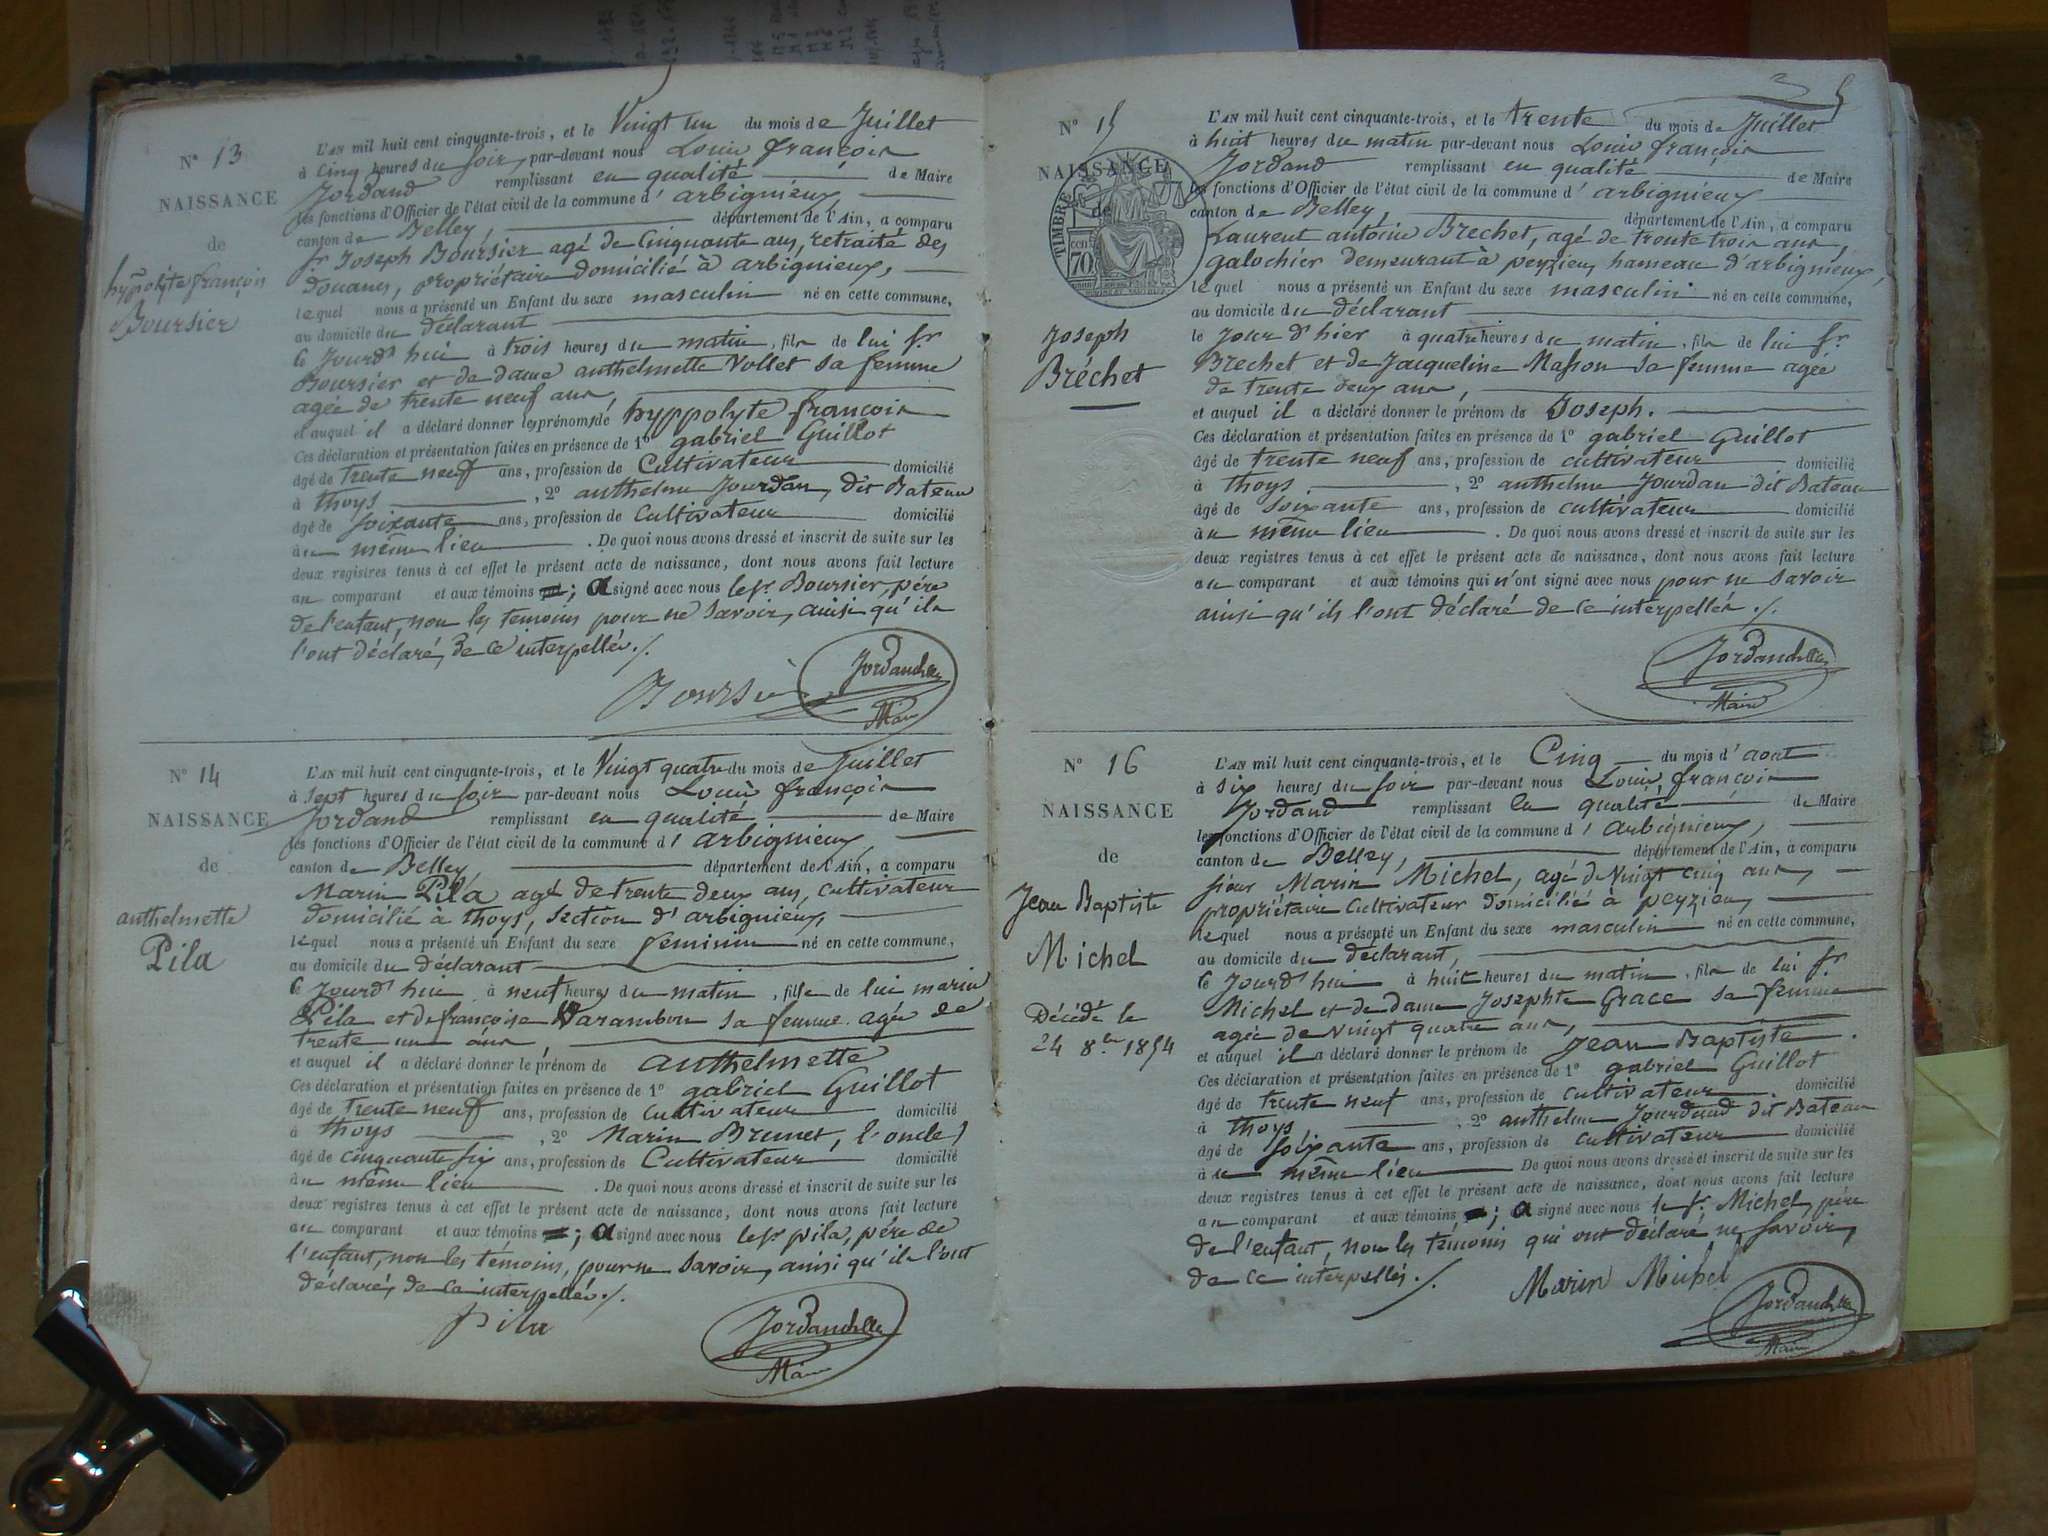 N° 13
NAISSANCE
de
hyppolite françois
Boursier
L'AN mil huit cent cinquante-trois, et le Vingt un du mois de Juillet
à Cinq heures du Soir, par-devant nous Louis françois
Jordand remplissant en qualité de Maire
les fonctions d'Officier de l'état civil de la commune d'arbignieux,
canton de Belley, département de l'Ain, a comparu
Sr Joseph Boursier agé de Cinquante ans, retraité des
douanes, propriétaire domicilié à arbignieux,
lequel nous a présenté un Enfant du sexe masculin né en cette commune,
au domicile du déclarant
Ce Jourd'hui à trois heures du matin, fils de lui Sr
Boursier et de dame anthelmette Vollet sa femme
agée de trente neuf ans,
et auquel il a déclaré donner les prénoms de hyppolyte françois
Ces déclaration et présentation faites en présence de 1° gabriel Guillot
âgé de trente neuf ans, profession de Cultivateur domicilié
à thoys, 2° anthelme Jourdan, dit Bateau
âgé de soixante ans, profession de Cultivateur domicilié
au même lieu. De quoi nous avons dressé et inscrit de suite sur les
deux registres tenus à cet effet le présent acte de naissance, dont nous avons fait lecture
au comparant et aux témoins ; a signé avec nous le sr Boursier, père
de l'enfant, non les temoins pour ne savoir, ainsi qu'ils
l'ont déclaré, de ce interpellés ./.
Boursier
Jordand
Maire
N° 14
NAISSANCE
de
anthelmette
Pila
L'AN mil huit cent cinquante-trois, et le Vingt quatre du mois de Juillet
à sept heures du Soir par-devant nous Louis françois
Jordand remplissant en qualité de Maire
les fonctions d'Officier de l'état civil de la commune d'arbignieux,
canton de Belley, département de l'Ain, a comparu
Marin Pila agé de trente deux ans, cultivateur
domicilié à thoys, section d'arbignieux,
lequel nous a présenté un Enfant du sexe feminin né en cette commune,
au domicile du déclarant
Ce Jourd'hui à neuf heures du matin, fille de lui marin
Pila et de françoise Varambon sa femme agée de
trente un ans,
et auquel il a déclaré donner le prénom de anthelmette
Ces déclaration et présentation faites en présence de 1° gabriel Guillot
âgé de trente neuf ans, profession de cultivateur domicilié
à thoys, 2° Marin Brunet, l'oncle,
âgé de cinquante six ans, profession de Cultivateur domicilié
au même lieu. De quoi nous avons dressé et inscrit de suite sur les
deux registres tenus à cet effet le présent acte de naissance, dont nous avons fait lecture
au comparant et aux témoins ; a signé avec nous le sr pila, père de
l'enfant, non les témoins, pour ne savoir, ainsi qu'ils l'ont
déclaré, de ce interpellés ./.
Pila
Jordand
Maire
5
N° 15
NAISSANCE
de
TIMBRE
70
Joseph
Bréchet
L'AN mil huit cent cinquante-trois, et le trente du mois de Juillet
à huit heures du matin par-devant nous Louis françois
Jordand remplissant en qualité de Maire
les fonctions d'Officier de l'état civil de la commune d'arbignieux
canton de Belley, département de l'Ain, a comparu
Laurent antoine Brechet, agé de trente trois ans,
galochier demeurant à peyzieu, hameau d'arbignieux,
lequel nous a présenté un Enfant du sexe masculin né en cette commune,
au domicile du déclarant
le Jour d'hier à quatre heures du matin, fils de lui Sr
Brechet et de Jacqueline Masson sa femme agée
de trente deux ans,
et auquel il a déclaré donner le prénom de Joseph.
Ces déclaration et présentation faites en présence de 1° gabriel Guillot
âgé de trente neuf ans, profession de cultivateur domicilié
à thoys, 2° anthelme Jourdan dit Bateau
âgé de soixante ans, profession de cultivateur domicilié
au même lieu. De quoi nous avons dressé et inscrit de suite sur les
deux registres tenus à cet effet le présent acte de naissance, dont nous avons fait lecture
au comparant et aux témoins qui n'ont signé avec nous pour ne savoir
ainsi qu'ils l'ont déclaré de ce interpellés ./.
Jordand
Maire
N° 16
NAISSANCE
de
Jean Baptiste
Michel
Décédé le
24 8bre 1854
L'AN mil huit cent cinquante-trois, et le Cinq du mois d'aout
à six heures du soir par-devant nous Louis, françois
Jordand remplissant en qualité de Maire
les fonctions d'Officier de l'état civil de la commune d'arbignieux,
canton de Belley, département de l'Ain, a comparu
sieur Marin Michel, agé de Vingt cinq ans,
propriétaire Cultivateur domicilié à peyzieu,
lequel nous a présenté un Enfant du sexe masculin né en cette commune,
au domicile du déclarant,
Ce Jourd'hui à huit heures du matin, fils de lui Sr
Michel et de dame Josephte Grace sa femme
agée de Vingt quatre ans,
et auquel il a déclaré donner le prénom de Jean Baptiste.
Ces déclaration et présentation faites en présence de 1° gabriel Guillot
âgé de trente neuf ans, profession de cultivateur domicilié
à thoys, 2° anthelme Jourdand dit Bateau
âgé de soixante ans, profession de cultivateur domicilié
au même lieu De quoi nous avons dressé et inscrit de suite sur les
deux registres tenus à cet effet le présent acte de naissance, dont nous avons fait lecture
au comparant et aux témoins ; a signé avec nous le sr. Michel, père
de l'enfant, non les témoins qui ont déclaré ne savoir,
de ce interpellés ./.
Marin Michel
Jordand
Maire